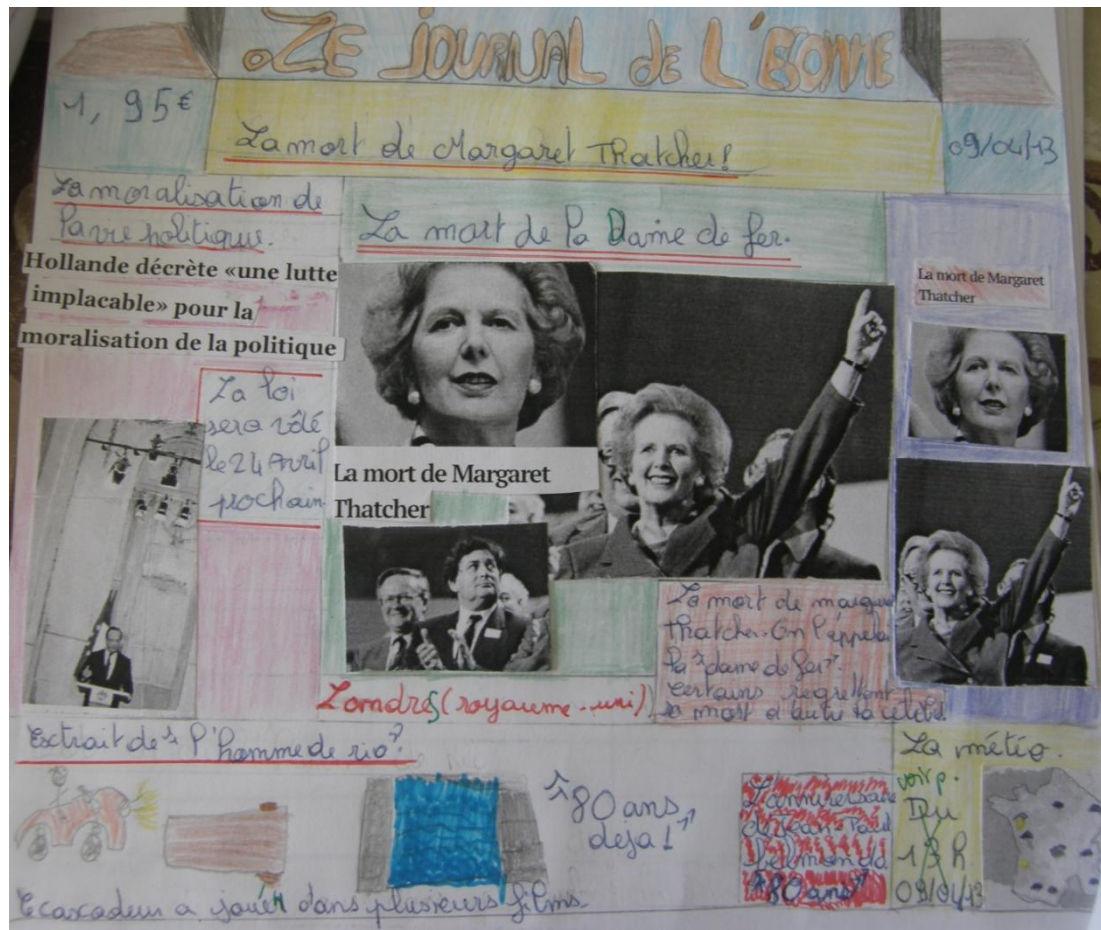 ZE JOURNAL de L'ESONNE
1,95€
La mort de Margaret Thatcher!
09/04/13
La moralisation de
la vie politique.
Hollande décrète «une lutte
implacable» pour la
moralisation de la politique
La loi
sera vôté
le 24 Avril
prochain
La mort de la Dame de fer.
La mort de Margaret
Thatcher
La mort de Margaret
Thatcher
La mort de
Thatcher. On l'appelai
la "dame de fer".
Certains regrettent
sa mort
Londres (royaume-uni)
Extrait de "l'homme de rio"
"80 ans
déja!"
L'anniversaire
de Jean-Paul
belmondo
"80 ans"
La météo.
voir p.
Du
13 h
09/04/13
a jouer dans plusieurs films.